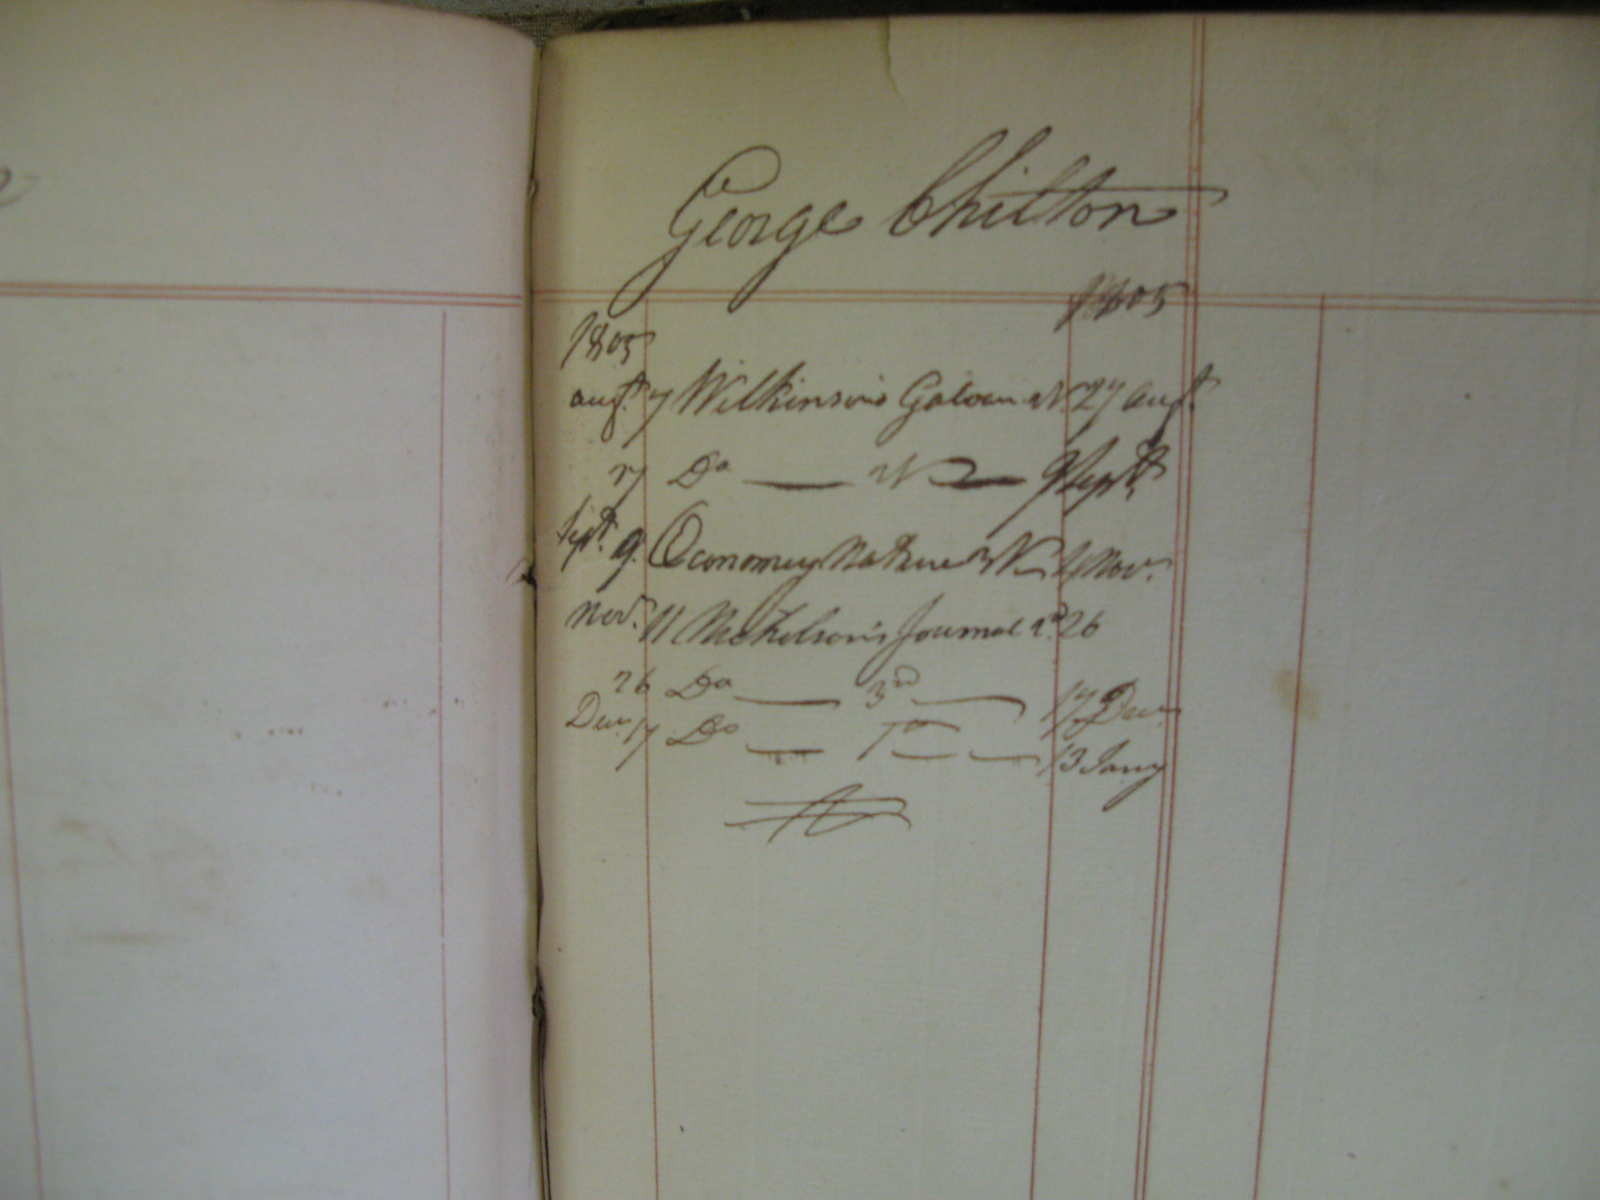 George Chilton
1805
1805
Augt. 7 Wilkinson's Galvan. 27 Augt.
27 Do 9 Sept.
Sept. 9 Oconomy Nature 11 Nov.
Nov. 11 Nicholson's Journal 26
26 Do 3rd 17 Decr.
Decr. 17 Do 13 Jany